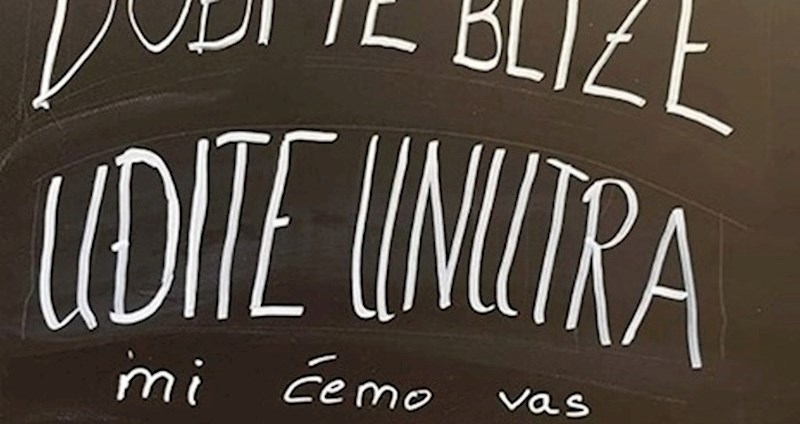 DOĐITE BLIŽE
UĐITE UNUTRA
mi ćemo vas